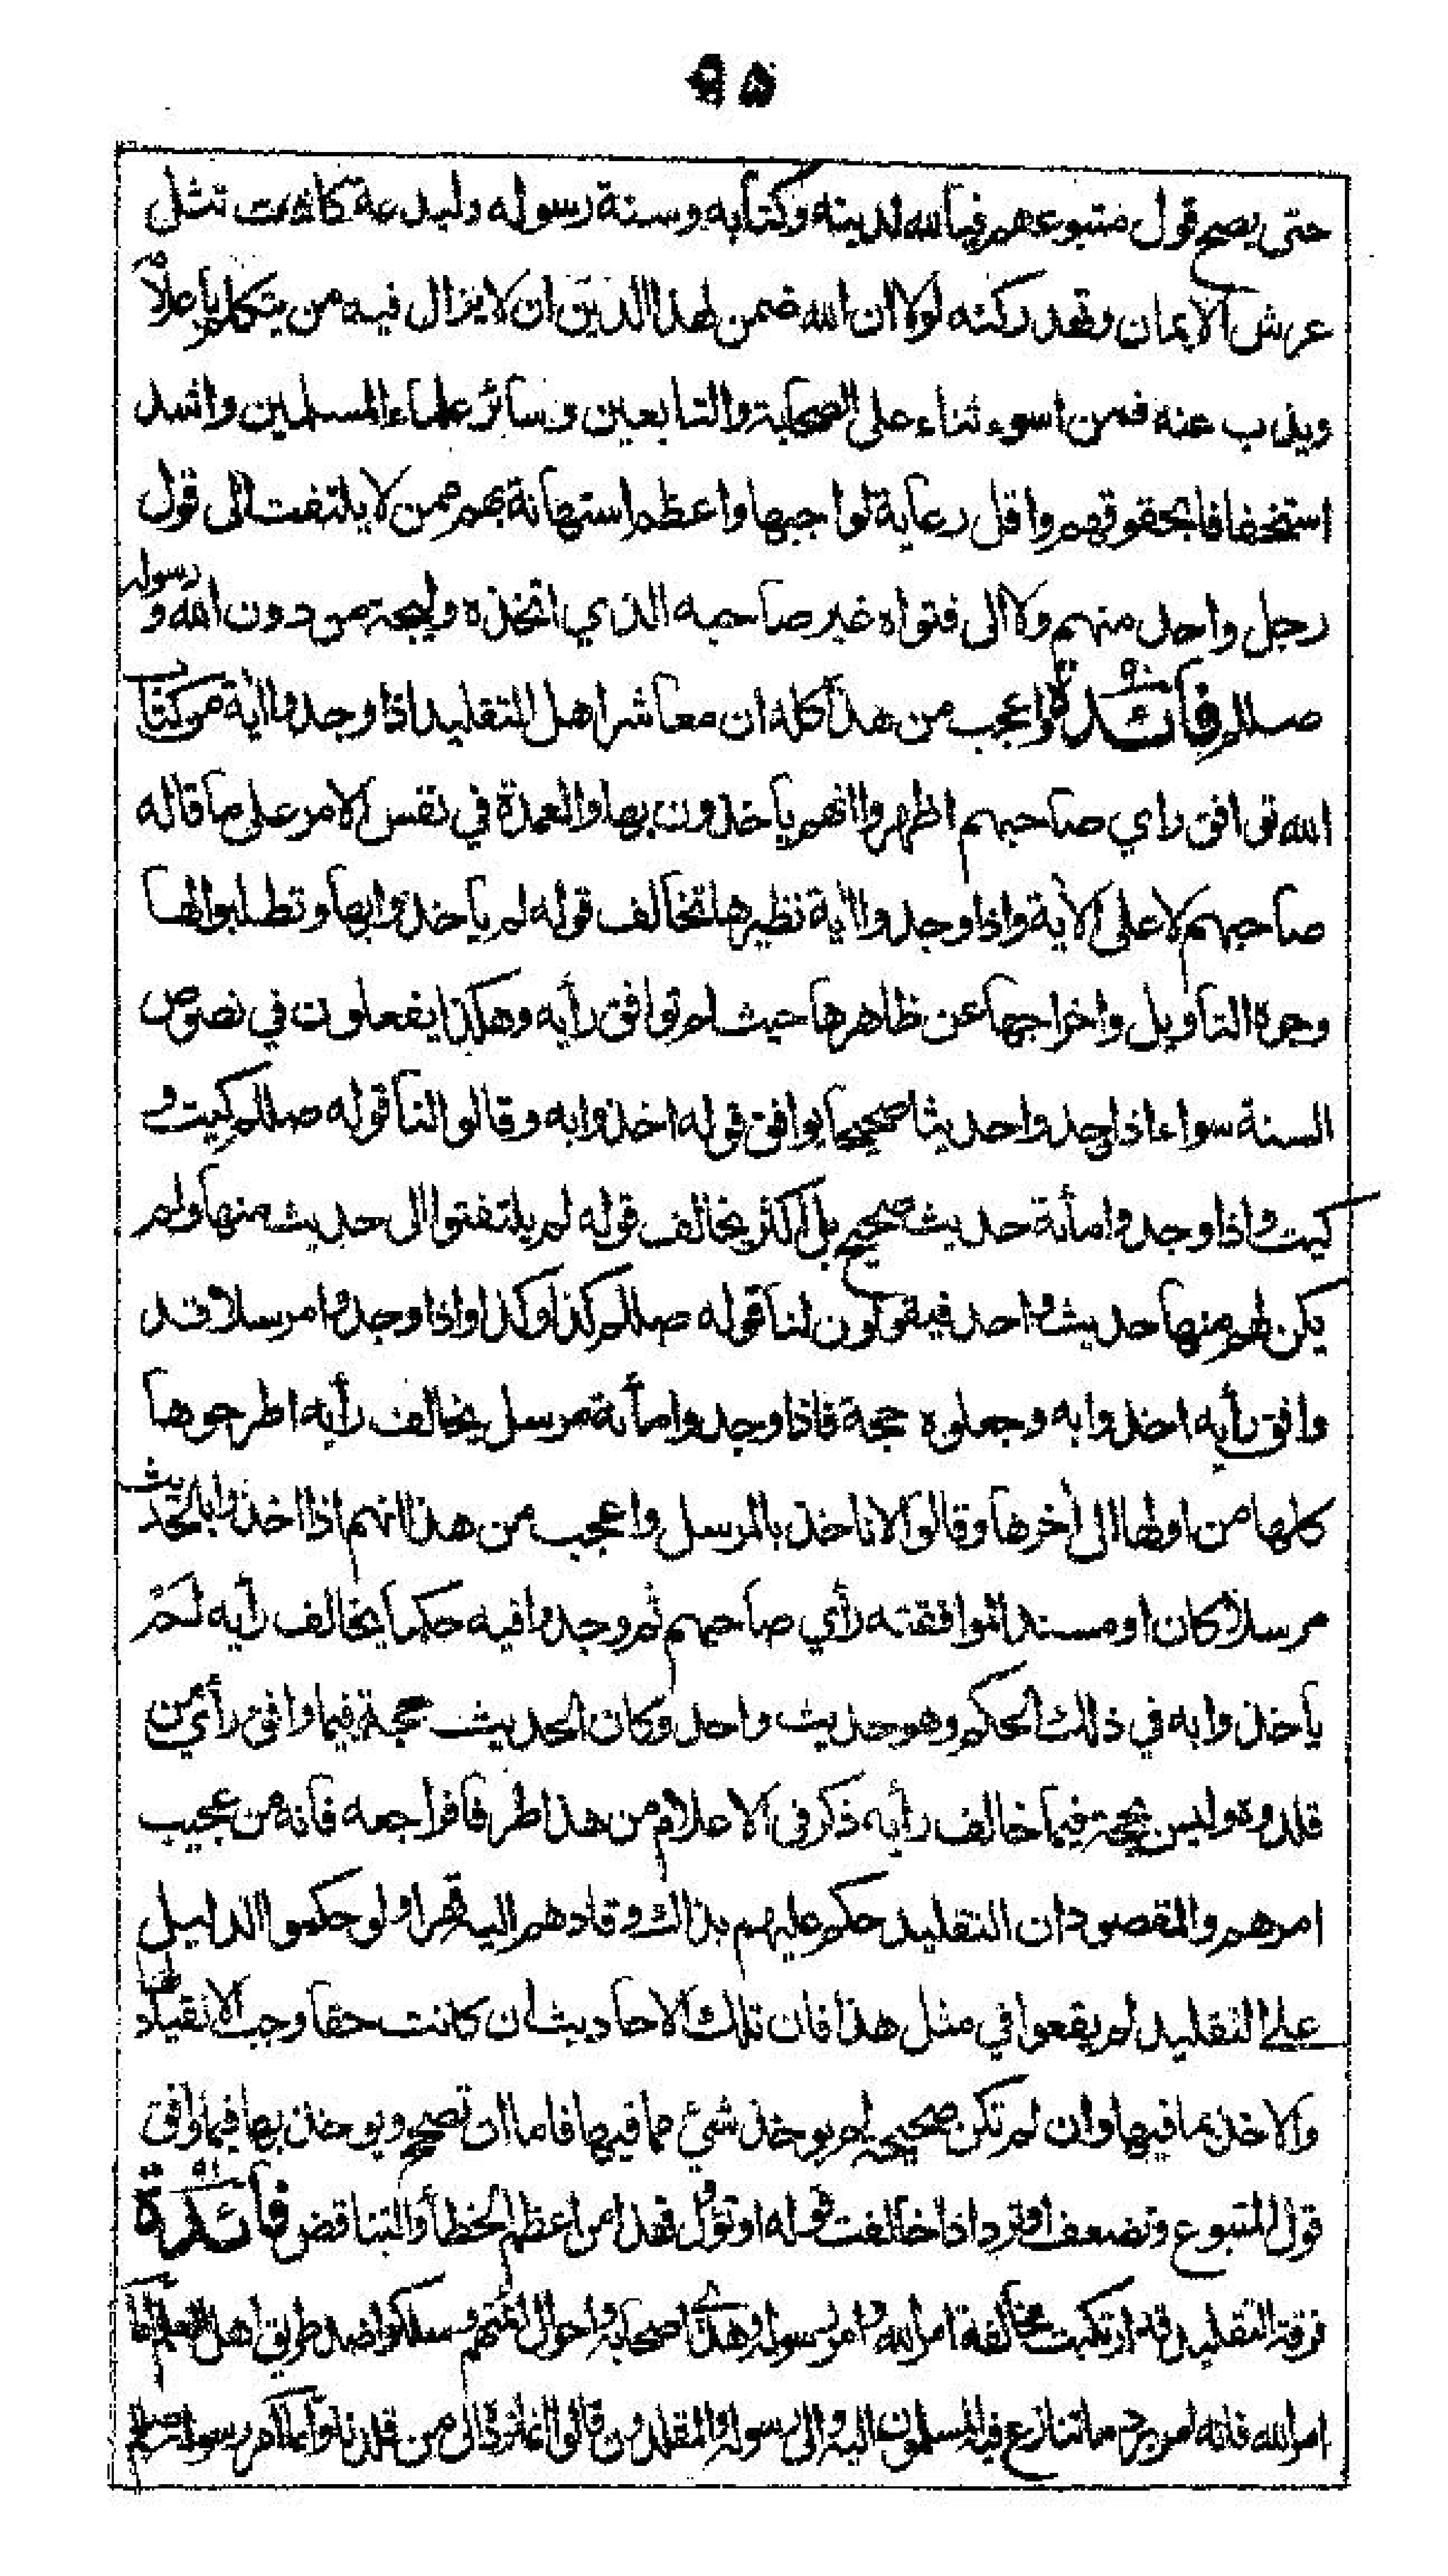 ٩٥
حتى يصح قول متبوعهم فيا لله لدينه وكتابه وسنة رسوله ولبدعة كادت تثل
عرش الايمان وتهد ركنه لولا ان الله ضمن لهذا الدين ان لا يزال فيه من يتكلم باعلامه
ويذب عنه فمن اسوء ثناء على الصحابة والتابعين وسائر علماء المسلمين واشد
استخفافا بحقوقهم واقل رعاية لواجبها واعظم استهانة بهم ممن لا يلتفت الى قول
رجل واحد منهم ولا الى فتواه غير صاحبه الذي اتخذه وليجة من دون الله ورسوله
صللم فائدة واعجب من هذا كله ان معاشر اهل التقليد اذا وجدوا اية من كتاب
الله توافق راي صاحبهم اظهروا انهم ياخذون بها والعمدة في نفس الامر على ما قاله
صاحبهم لا على الاية واذا وجدوا اية نظيرها تخالف قوله لم ياخذوا بها وتطلبوا لها
وجوه التاويل واخراجها عن ظاهرها حيث لم توافق رأيه وهكذا يفعلون في نصوص
السنة سواء اذا وجدوا حديثا صحيحا يوافق قوله اخذوا به وقالوا لنا قوله صللم كيت و
كيت واذا وجدوا مأئة حديث صحيح بل اكثر يخالف قوله لم يلتفتوا الى حديث منها ولم
يكن لهم منها حديث واحد فيقولون لنا قوله صللم كذا وكذا واذا وجدوا مرسلا قد
وافق رأيه اخذوا به وجعلوه حجة فاذا وجدوا مأئة مرسل يخالف رأيه اطرحوها
كلها من اولها الى أخرها وقالوا لا ناخذ بالمرسل واعجب من هذا انهم اذا اخذوا بالحديث
مرسلا كان او مسندا لموافقته رأي صاحبهم ثم وجدوا فيه حكما يخالف رأيه لم
ياخذوا به في ذلك الحكم وهو حديث واحد وكان الحديث حجة فيما وافق رأي من
قلدوه وليس بحجة فيما خالف رأيه ذكر في الاعلام من هذا طرفا فراجعه فانه من عجيب
امرهم والمقصود ان التقليد حكم عليهم بذلك وقادهم اليه قهرا ولو حكموا الدليل
على التقليد لم يقعوا في مثل هذا فان تلك الاحاديث ان كانت حقا وجب الانقياد لها
والاخذ بما فيها وان لم تكن صحيحة لم يوخذ شئ مما فيها فاما ان تصح ويوخذ بها فيما وافق
قول المتبوع وتضعف او ترد اذا خالفت قوله او تؤل فهذا من اعظم الخطأ والتناقض فائدة
فرقة التقليد قد ارتكبت مخالفة امر الله وامر رسوله وهدي اصحابه واحوال ائمتهم وسلكوا ضد طريق اهل العلم اما
امر الله فانه امر برد ما تنازع فيه المسلمون اليه والى رسوله والمقلدون قالوا انما نرده الى من قلدناه واما امر رسوله صللم